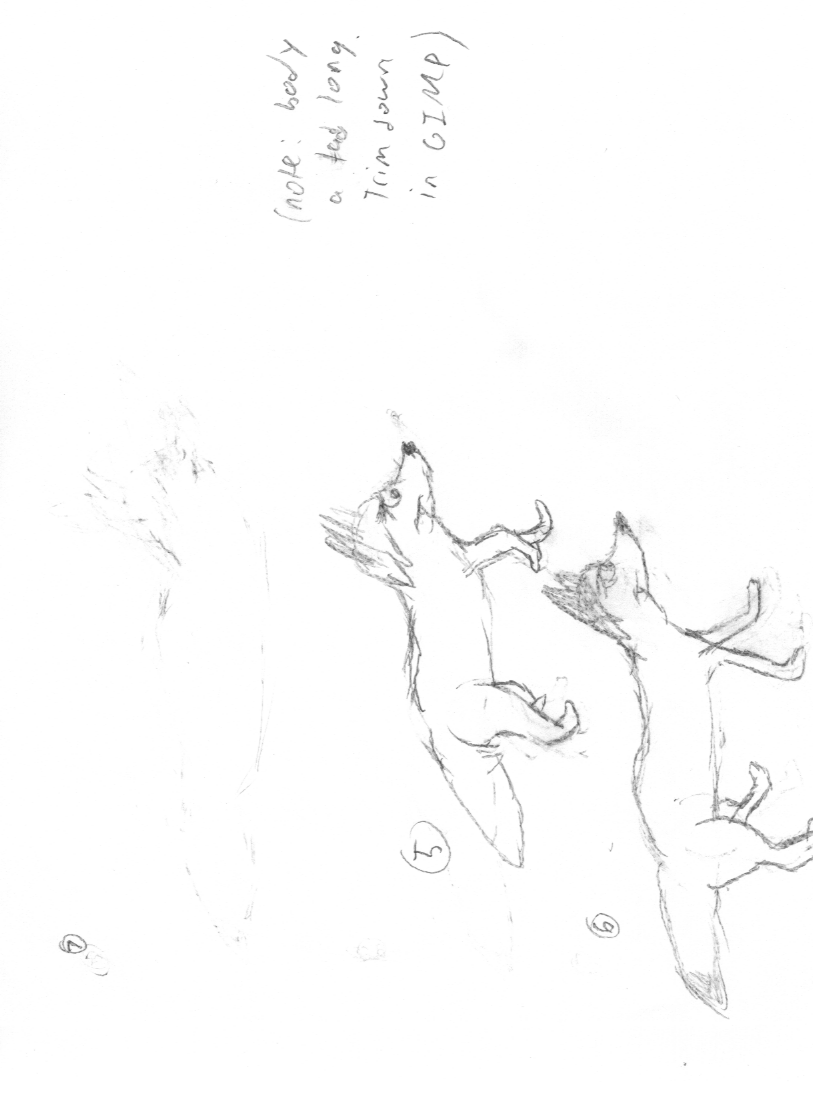 (note: body
a tad long.
Trim down
in GIMP)
5
6
7